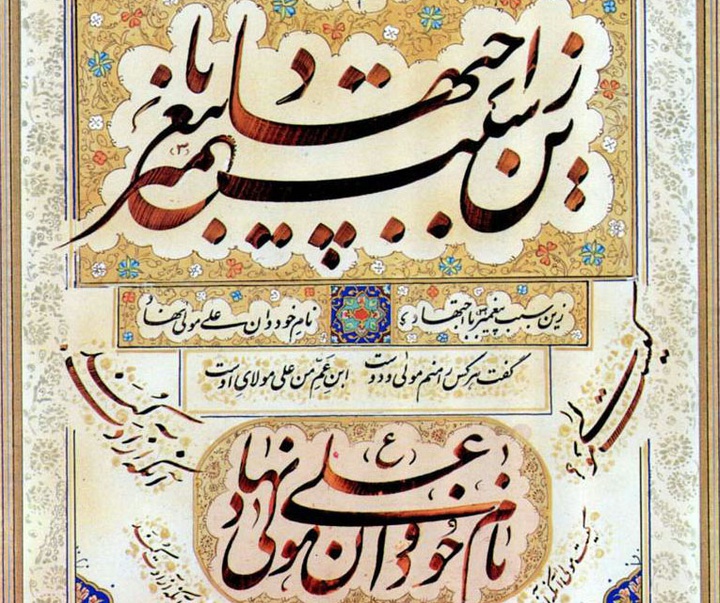 زین سبب پیغمبر با اجتهاد
زین سبب پیغمبر با اجتهاد نام خود وان علی مولی نهاد
گفت هر کس را منم مولی و دوست ابن عمّ من علی مولایِ اوست
کیست مولی؟
آنکه آزادت کند
نام خود وان علی (ع) مولی نهاد
کیست مولی آنکه